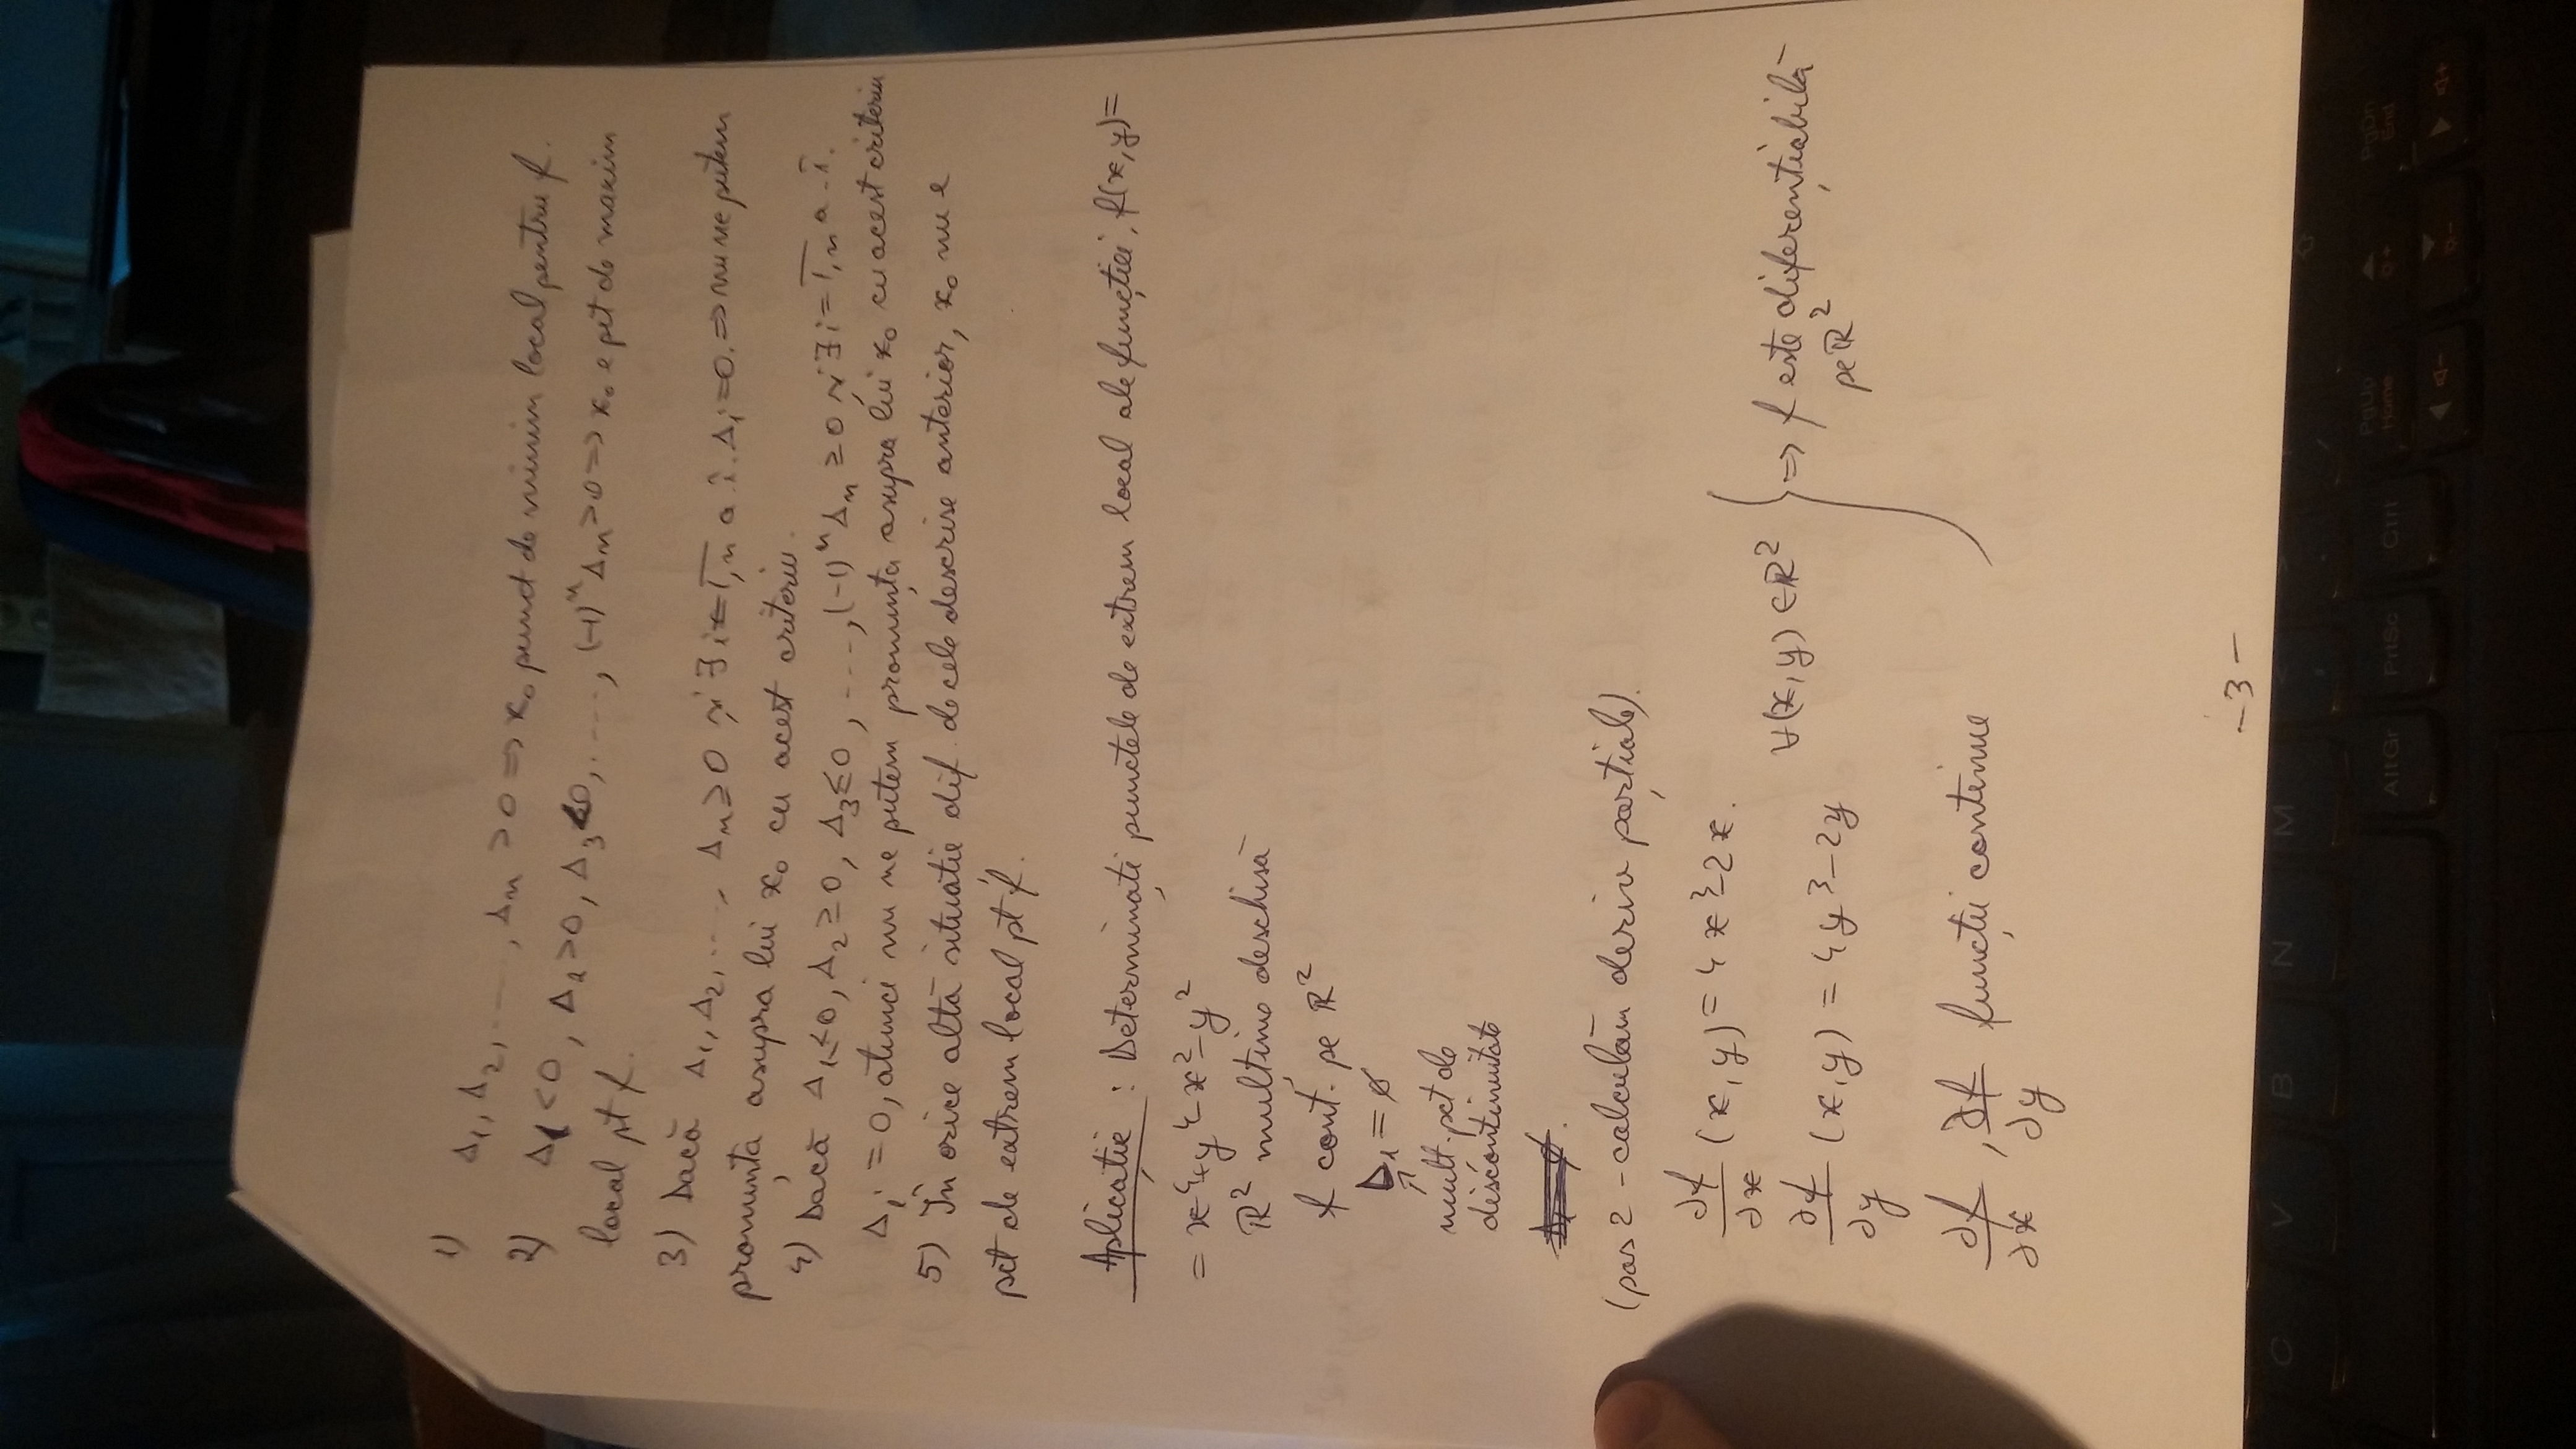 1) Δ₁, Δ₂, ......, Δₙ > 0 => x₀ punct de minim local pentru f.
2) Δ₁ < 0, Δ₂ > 0, Δ₃ < 0, ......, (-1)ⁿ Δₙ > 0 => x₀ e pct de maxim
local pt f.
3) Dacă Δ₁, Δ₂, ...., Δₙ ≥ 0 și ∃ i = 1,n a.î. Δᵢ = 0. => nu ne putem
pronunța asupra lui x₀ cu acest criteriu.
4) Dacă Δ₁ ≤ 0, Δ₂ ≥ 0, Δ₃ ≤ 0, ...., (-1)ⁿ Δₙ ≥ 0 și ∃ i = 1,n a.î.
Δᵢ = 0, atunci nu ne putem pronunța asupra lui x₀ cu acest criteriu
5) În orice altă situație dif. de cele descrise anterior, x₀ nu e
pct de extrem local pt f.
Aplicație : Determinați punctele de extrem local ale funcției, f(x,y) =
= x⁴+y⁴-x²-y²
ℝ² mulțime deschisă
f cont. pe ℝ²
D₁ = ∅
mult. pct de
discontinuitate
(pas 2 - calculăm deriv parțiale).
∂f/∂x (x,y) = 4x³-2x.
∀(x,y) ∈ ℝ² => f este diferențiabilă
∂f/∂y (x,y) = 4y³-2y
pe ℝ²
∂f/∂x , ∂f/∂y funcții continue
- 3 -
C V B N M
AltGr PrtSc Ctrl PgUp Home PgDn End